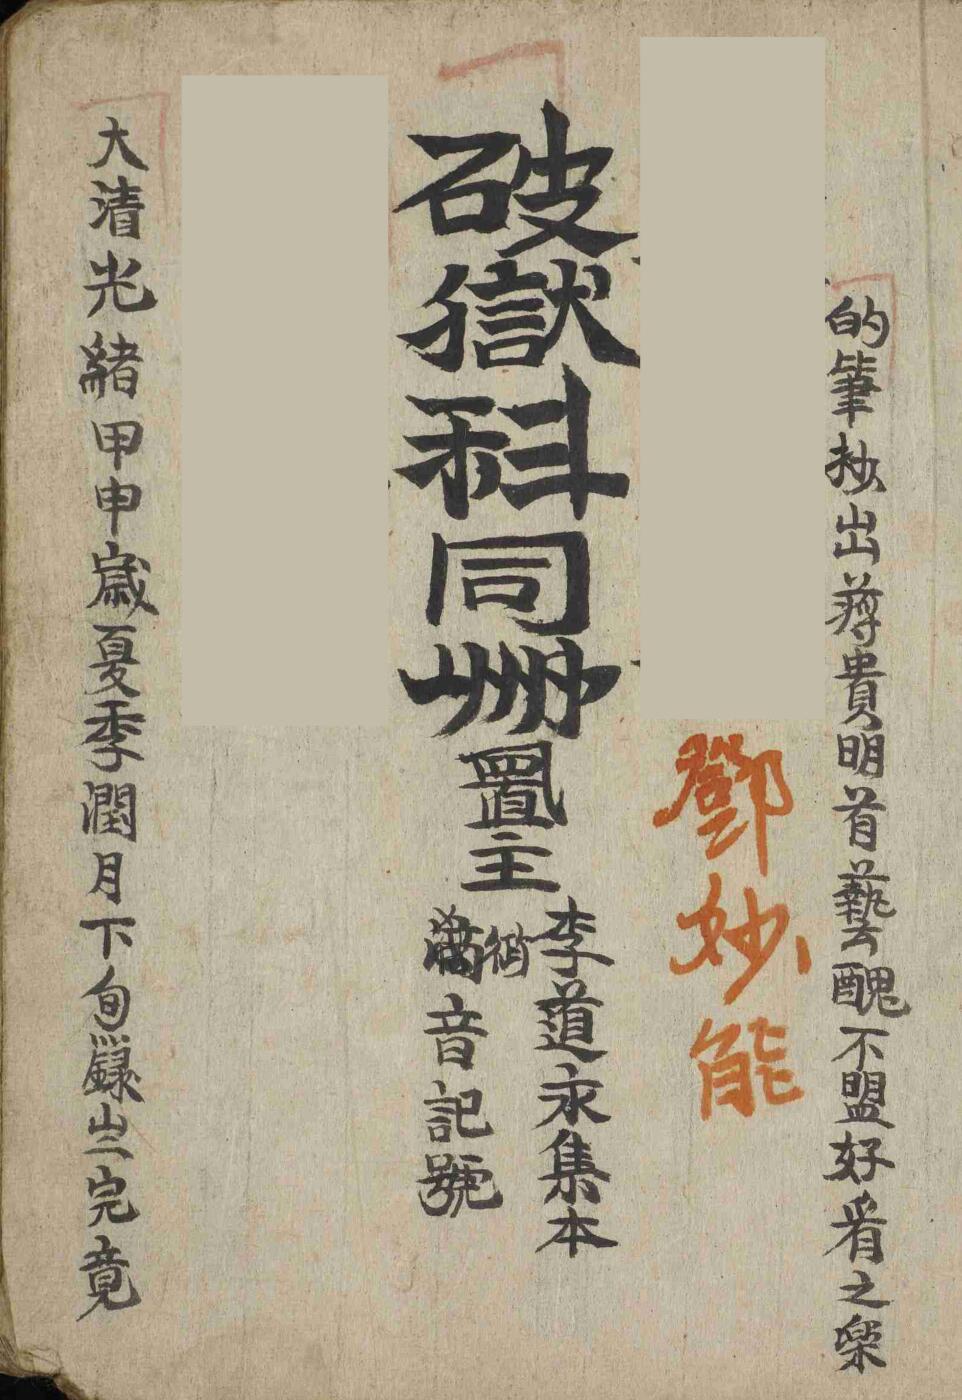 的筆抄出蓐貴明首藝醜不盟好看之樂
鄧妙能
破獄科同卌置主
李道永集本
音記號
大清光緒甲申歲夏季潤月下旬錄出完竟